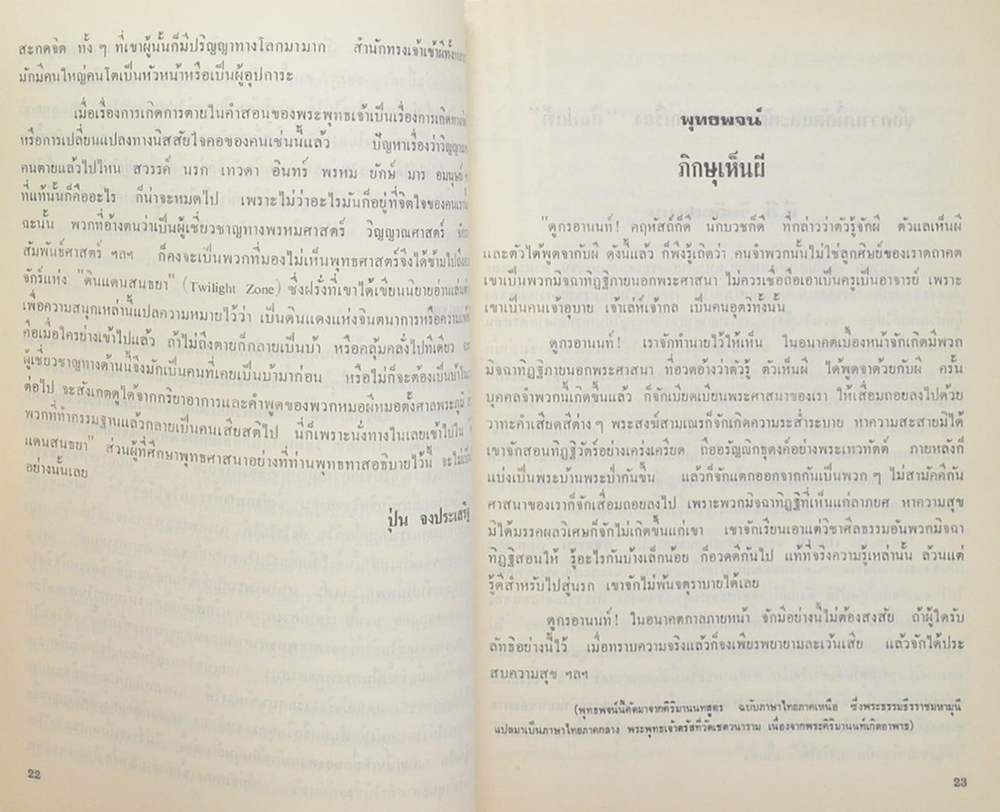 สะกดจิต ทั้ง ๆ ที่เขาผู้นั้นก็มีปริญญาทางโลกมามาก สำนักทรงเจ้าเข้าผีทั้ง
มักมีคนใหญ่คนโตเป็นหัวหน้าหรือเป็นผู้อุปการะ
เมื่อเรื่องการเกิดการตายในคำสอนของพระพุทธเจ้าเป็นเรื่องการเกิดทาง
หรือการเปลี่ยนแปลงทางนิสสัยใจคอของคนเช่นนี้แล้ว ปัญหาเรื่องว่าวิญญาณ
คนตายแล้วไปไหน สวรรค์ นรก เทวดา อินทร์ พรหม ยักษ์ มาร อมนุษย์
ที่แท้นั้นก็คืออะไร ก็น่าจะหมดไป เพราะไม่ว่าอะไรมันก็อยู่ที่จิตใจของคนเรา
ฉะนั้น พวกที่อ้างตนว่าเป็นผู้เชี่ยวชาญทางพรหมศาสตร์ วิญญาณศาสตร์
สัมพันธ์ศาสตร์ ฯลฯ ก็คงจะเป็นพวกที่มองไม่เห็นพุทธศาสตร์จึงได้ข้ามไปถึง
จักร์แห่ง "ดินแดนสนธยา" (Twilight Zone) ซึ่งฝรั่งที่เขาได้เขียนนิยายอ่านเล่น
เพื่อความสนุกเหล่านี้แปลความหมายไว้ว่า เป็นดินแดงแห่งจินตนาการหรือความเพ้อ
คือเมื่อใครย่างเข้าไปแล้ว ถ้าไม่ถึงตายก็กลายเป็นบ้า หรือคลุ้มคลั่งไปทีเดียว
ผู้เชี่ยวชาญทางด้านนี้จึงมักเป็นคนที่เคยเป็นบ้ามาก่อน หรือไม่ก็จะต้องเป็นบ้า
ต่อไป จะสังเกตดูได้จากกริยาอาการและคำพูดของพวกหมอผีหมอตั้งศาลพระภูมิ
พวกที่ทำกรรมฐานแล้วกลายเป็นคนเสียสติไป นี่ก็เพราะนั่งทางในเลยเข้าไปใน
แดนสนธยา" ส่วนผู้ที่ศึกษาพุทธศาสนาอย่างที่ท่านพุทธทาสอธิบายไว้นี้ จะไม่เป็น
อย่างนั้นเลย
ปุ่น จงประเสริฐ
22
พุทธพจน์
ภิกษุเห็นผี
"ดูกรอานนท์! คฤหัสถ์ก็ดี นักบวชก็ดี ที่กล่าวว่าตัวรู้จักผี ตัวแลเห็นผี
และตัวได้พูดจากับผี ดังนี้แล้ว ก็พึงรู้เถิดว่า คนจำพวกนั้นไม่ใช่ลูกศิษย์ของเราตถาคต
เขาเป็นพวกมิจฉาทิฏฐิภายนอกพระศาสนา ไม่ควรเชื่อถือเอาเป็นครูเป็นอาจารย์ เพราะ
เขาเป็นคนเจ้าอุบาย เจ้าเล่ห์เจ้ากล เป็นคนอุตริทั้งนั้น
ดูกรอานนท์! เราจักทำนายไว้ให้เห็น ในอนาคตเบื้องหน้าจักเกิดมีพวก
มิจฉาทิฏฐิภายนอกพระศาสนา ที่อวดอ้างว่าตัวรู้ ตัวเห็นผี ได้พูดจาด้วยกับผี ครั้น
บุคคลจำพวกนี้เกิดขึ้นแล้ว ก็จักเบียดเบียนพระศาสนาของเรา ให้เสื่อมถอยลงไปด้วย
วาทะคำเสียดสีต่าง ๆ พระสงฆ์สามเณรก็จักเกิดความระส่ำระบาย หาความสะสายมิได้
เขาจักสอนทิฏฐิวัตร์อย่างเคร่งเครียด ถืออรัญญิกธุดงค์อย่างพระเทวทัตต์ ภายหลังก็
แบ่งเป็นพระบ้านพระป่ากันขึ้น แล้วก็จักแตกออกจากกันเป็นพวก ๆ ไม่สามัคคีกัน
ศาสนาของเราก็จักเสื่อมถอยลงไป เพราะพวกมิจฉาทิฏฐิที่เห็นแก่ลาภยศ หาความสุข
มิได้มรรคผลวิเศษก็จักไม่เกิดขึ้นแก่เขา เขาจักเรียนเอาแต่วิชาศีลธรรมอันพวกมิจฉา
ทิฏฐิสอนให้ รู้อะไรกันบ้างเล็กน้อย ก็อวดดีกันไป แท้ที่จริงความรู้เหล่านั้น ล้วนแต่
รู้ดีสำหรับไปสู่นรก เขาจักไม่พ้นจตุราบายได้เลย
ดูกรอานนท์! ในอนาคตกาลภายหน้า จักมีอย่างนี้ไม่ต้องสงสัย ถ้าผู้ใดรับ
ลัทธิอย่างนี้ไว้ เมื่อทราบความจริงแล้วก็จงเพียรพยายามละเว้นเสีย แล้วจักได้ประ
สบความสุข ฯลฯ
(พุทธพจน์นี้คัดมาจากคิริมานนทสูตร ฉบับภาษาไทยภาคเหนือ ซึ่งพระธรรมธีรราชมหามุนี
แปลมาเป็นภาษาไทยภาคกลาง พระพุทธเจ้าตรัสที่วัดเชตวนาราม เนื่องจากพระคิริมานนท์เกิดอาพาธ)
23